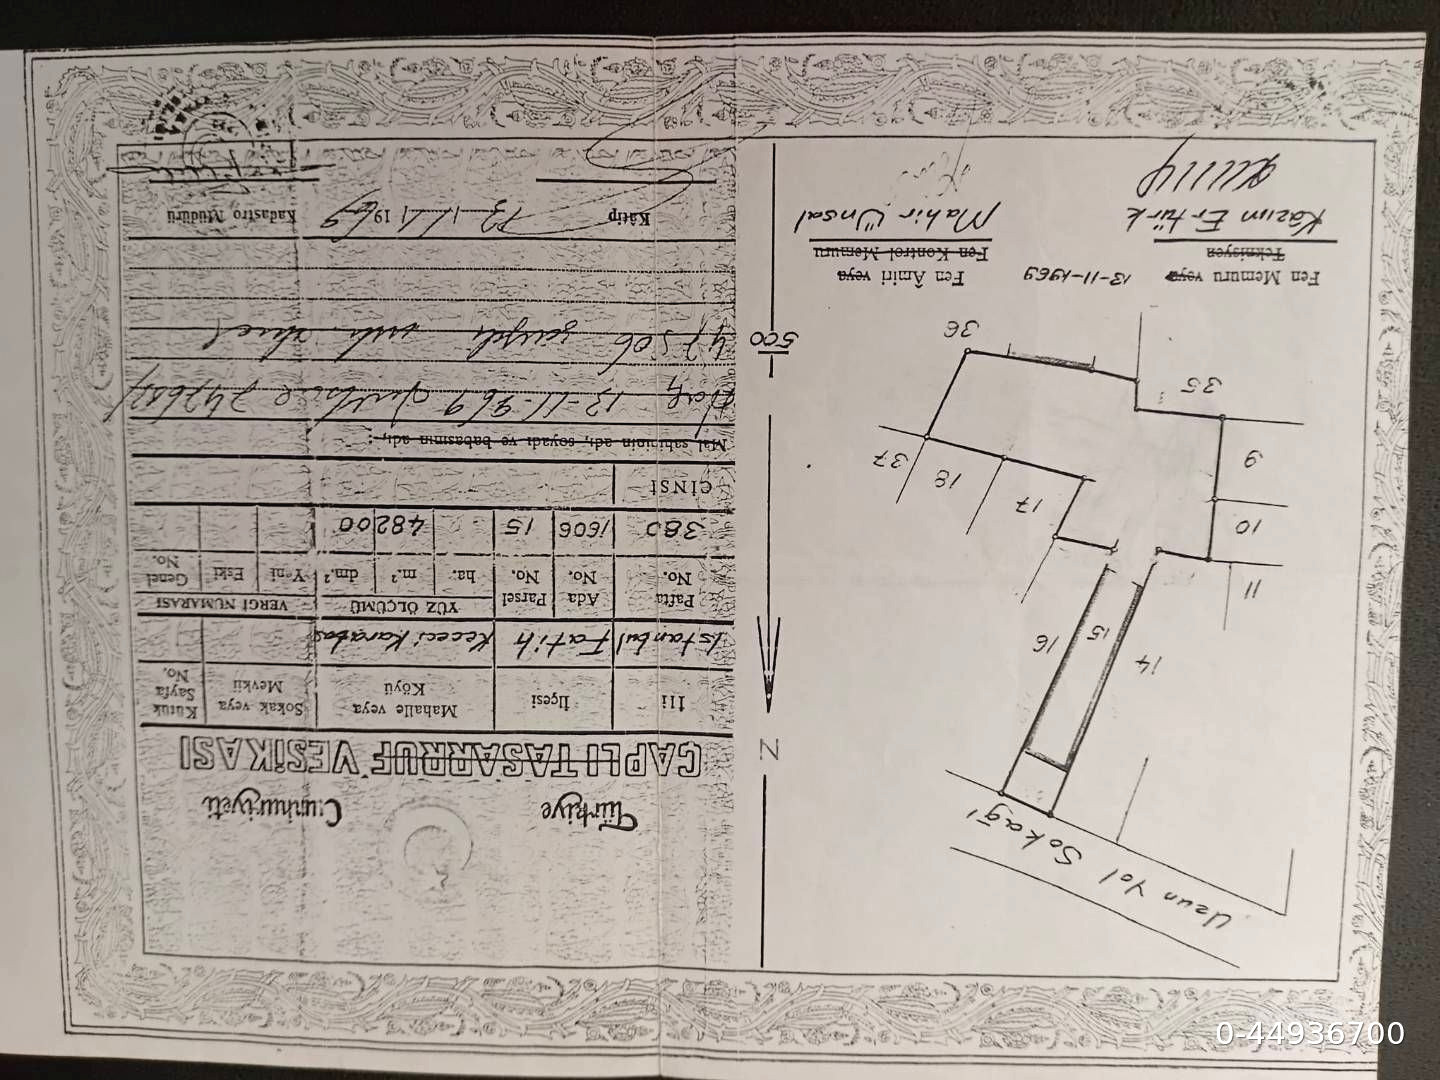 Türkiye Cumhuriyeti
ÇAPLI TASARRUF VESİKASI
İli
İlçesi
Mahalle veya Köyü
Sokak veya Mevkii
Kütük Sayfa No.
İstanbul
Fatih
Keçeci Karabaş
YÜZ ÖLÇÜMÜ
VERGİ NUMARASI
Pafta No.
Ada No.
Parsel No.
ha.
m.²
dm.²
Yeni
Eski
Genel No.
380
1606
15
482
00
CİNSİ
Mal sahibinin adı, soyadı ve babasının adı,:
13-11-969
Kâtip
13-11-1969
Kadastro Müdürü
Uzun Yol Sokağı
14
15
16
11
10
9
17
18
37
35
36
N
500
Fen Memuru veya Teknisyen
13-11-1969
Fen Âmiri veya Fen Kontrol Memuru
Kazım Ertürk
Mahir Ünsal
0-44936700